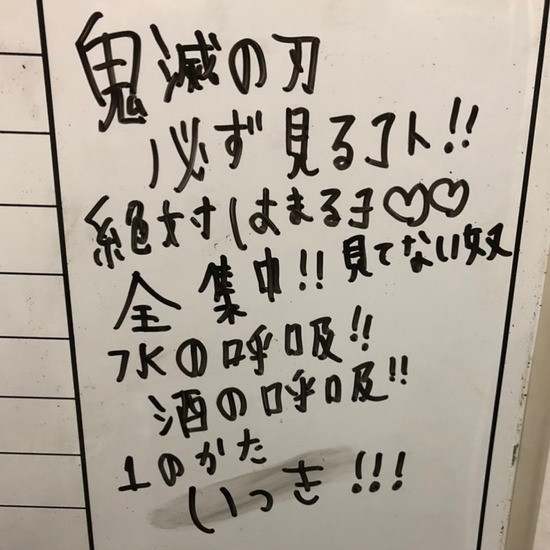 鬼滅の刃
必ず見るコト!!
絶対はまるヨ♡♡
全集中!! 見てない奴
水の呼吸!!
酒の呼吸!!
1のかた
いっき!!!